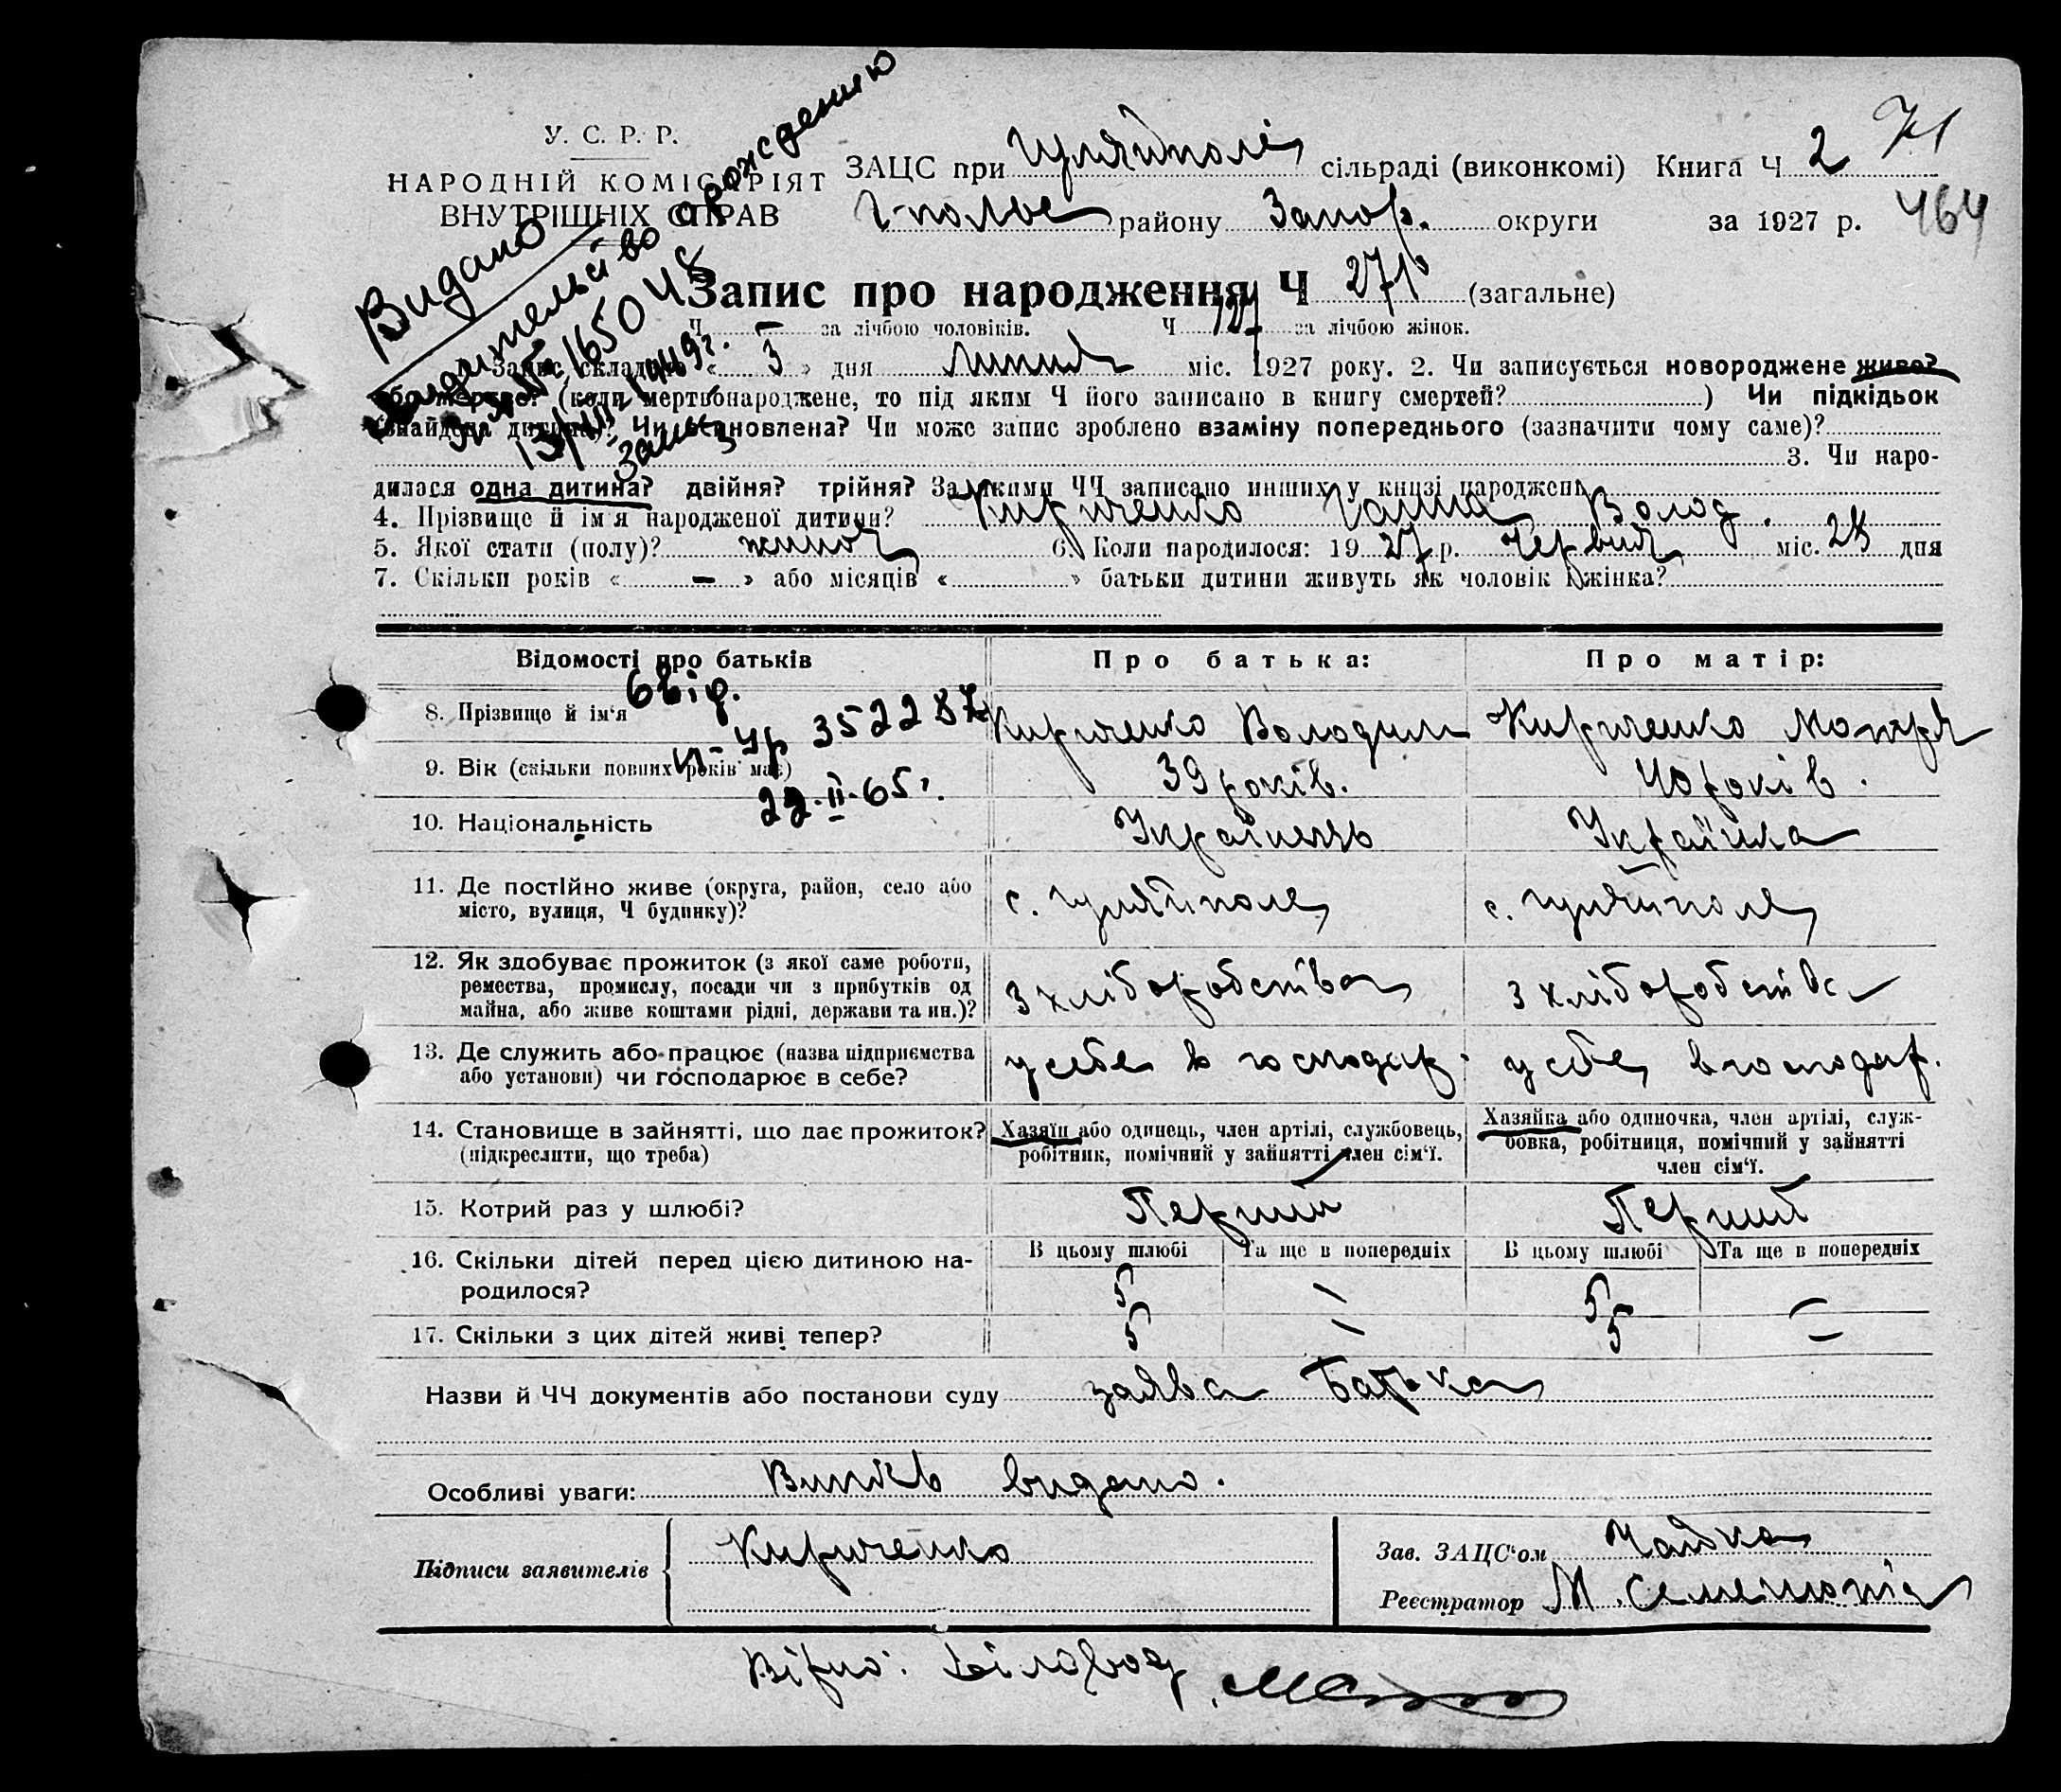 71
У. С. Р. Р.
НАРОДНІЙ КОМІСАРІЯТ
ВНУТРІШНІХ СПРАВ
ЗАЦС при Гуляйполі сільраді (виконкомі) Книга Ч 2
Г-полье району Запор. округи за 1927 р. 464
Видано
Свидетельство о рождению
за № 165048
13/III 1949 г.
Запис про народження Ч 271 (загальне)
Ч – за лічбою чоловіків. Ч 127 за лічбою жінок.
1. Запис складено « 3 » дня липня міс. 1927 року. 2. Чи записується новороджене живе?
або мертве? (коли мертвонароджене, то під яким Ч його записано в книгу смертей?) Чи підкідьок
(знайдена дитина)? Чи встановлена? Чи може запис зроблено взаміну попереднього (зазначити чому саме)?
3. Чи наро-
дилася одна дитина? двійня? трійня? За якими ЧЧ записано инших у книзі народжень
4. Прізвище й ім'я народженої дитини? Кириченко Ганна Волод.
5. Якої стати (полу)? жиноч 6. Коли народилося: 1927 р. Червня міс. 28 дня
7. Скільки років « – » або місяців « » батьки дитини живуть як чоловік і жінка?
Відомості про батьків Про батька: Про матір:
свід.
8. Прізвище й ім'я Кириченко Володим Кириченко Мотря
II-УР 352287
9. Вік (скільки повних років має) 39 років. 40 років.
22.II.65 г.
10. Національність Українець Українка
11. Де постійно живе (округа, район, село або
місто, вулиця, Ч будинку)? с. Гуляйполе с. Гуляйполе
12. Як здобуває прожиток (з якої саме роботи,
ремества, промислу, посади чи з прибутків од
майна, або живе коштами рідні, держави та ин.)? З хліборобства З хліборобства
13. Де служить або працює (назва підприємства
або установи) чи господарює в себе? у себе в господар. у себе в господар.
14. Становище в зайнятті, що дає прожиток?
(підкреслити, що треба)
Хазяїн або одинець, член артілі, службовець,
робітник, помічний у зайнятті член сім'ї.
Хазяйка або одиночка, член артілі, служ-
бовка, робітниця, помічний у зайнятті
член сім'ї.
15. Котрий раз у шлюбі? Перший Перший
16. Скільки дітей перед цією дитиною на-
родилося?
В цьому шлюбі Та ще в попередніх В цьому шлюбі Та ще в попередніх
5 – 5 –
17. Скільки з цих дітей живі тепер? 5 – 5 –
Назви й ЧЧ документів або постанови суду заява Батька
Особливі уваги: Випись видано.
Підписи заявителів Кириченко
Зав. ЗАЦС'ом Чайка
Реєстратор М.
Вірно: